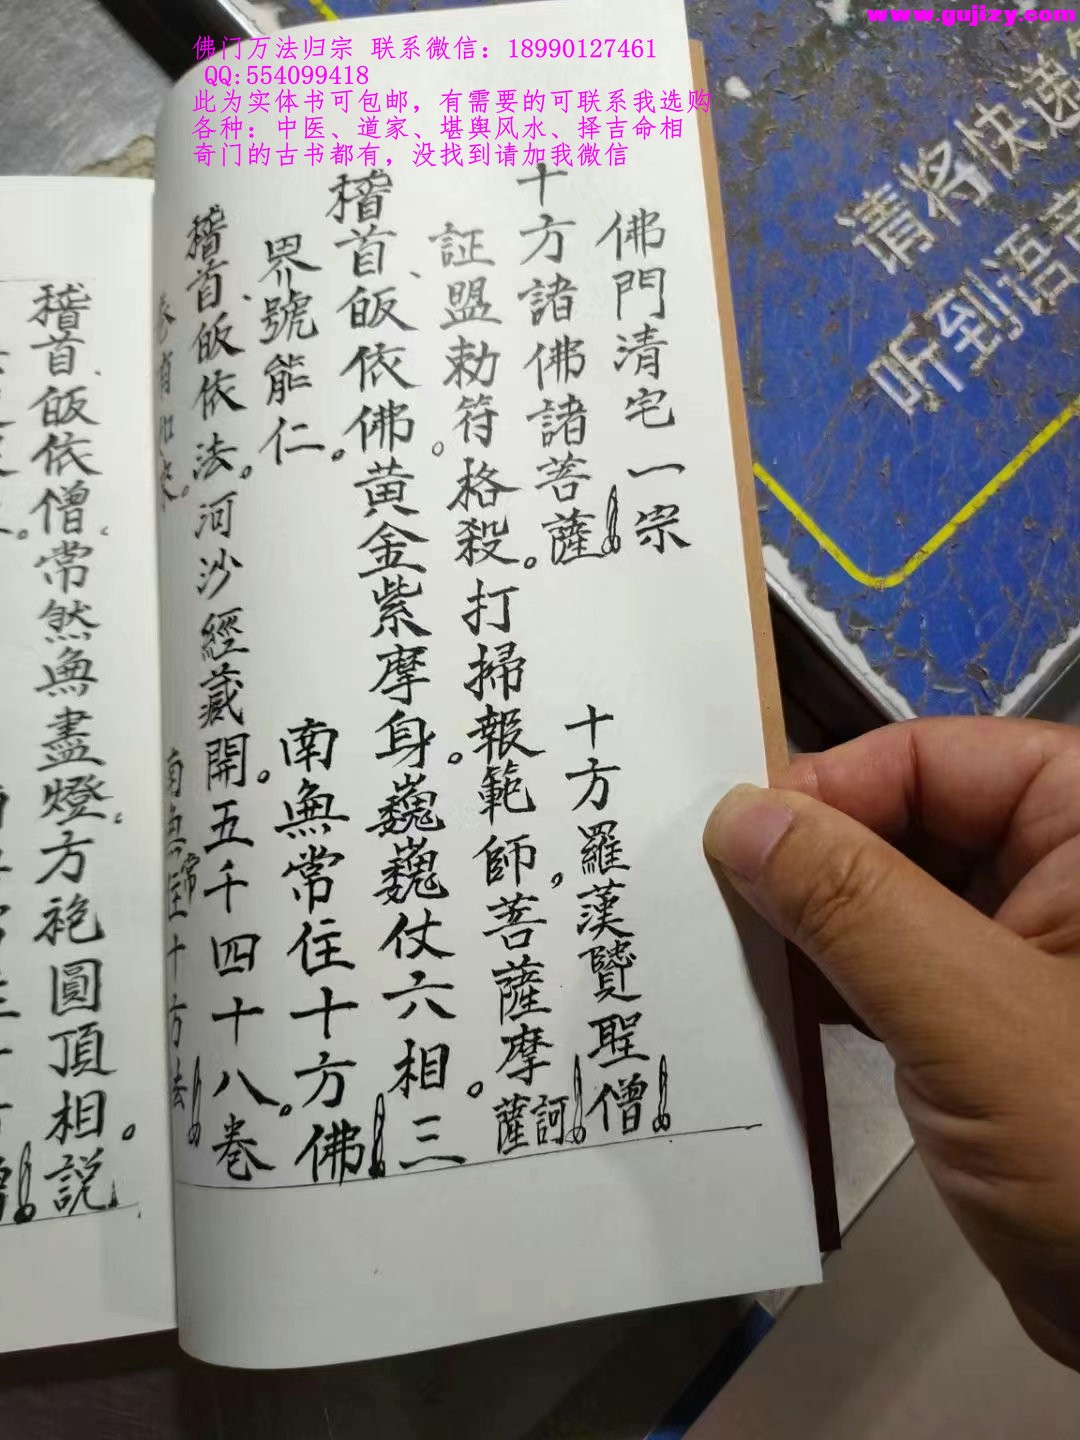 www.gujizy.com
佛门万法归宗 联系微信：18990127461
QQ:554099418
此为实体书可包邮，有需要的可联系我选购
各种：中医、道家、堪舆风水、择吉命相
奇门的古书都有，没找到请加我微信
请将快递
听到语音
佛門清宅一宗
十方諸佛諸菩薩 十方羅漢賢聖僧
証盟勅符格殺。打掃報範師，菩薩摩訶薩
稽首、皈依佛黄金紫摩身。巍巍仗六相。三
界號能仁。 南無常住十方佛
稽首、皈依法。河沙經藏開。五千四十八。卷
南無常住十方法
稽首、皈依僧。常然無盡燈。方袍圓頂相。説